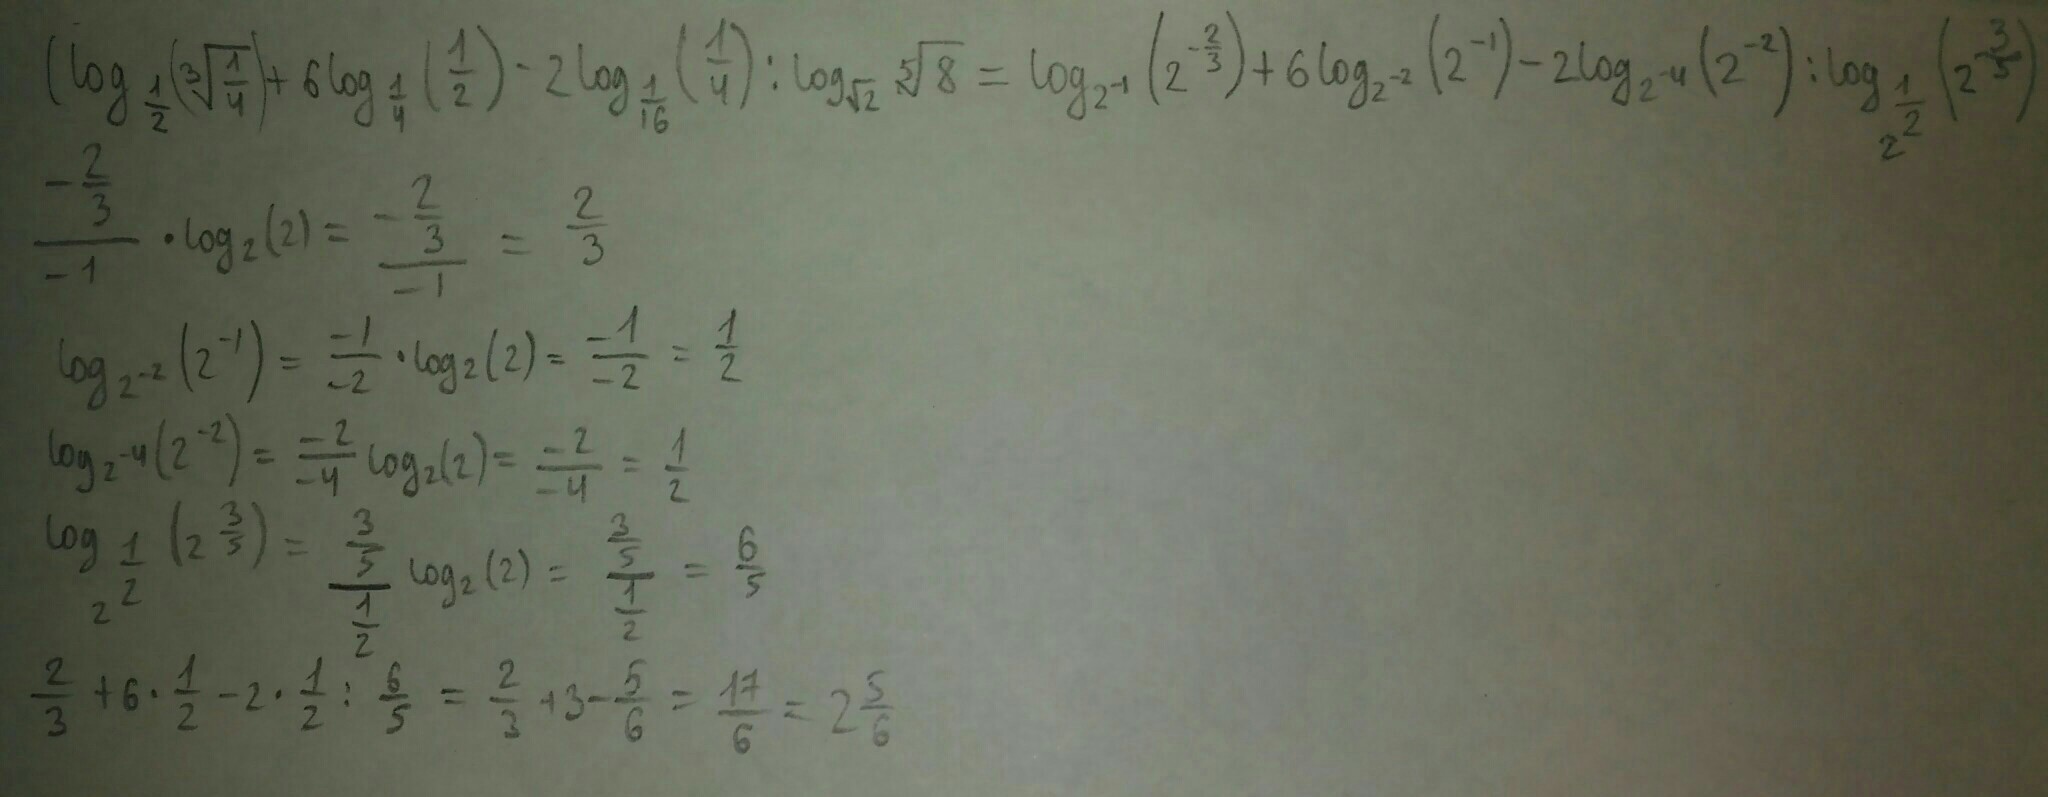 (log_{1/2}(∛(1/4)) + 6log_{1/4}(1/2) - 2log_{1/16}(1/4) : log_{√2} ⁵√8 = log_{2^{-1}}(2^{-2/3}) + 6log_{2^{-2}}(2^{-1}) - 2log_{2^{-4}}(2^{-2}) : log_{2^{1/2}}(2^{3/5})
(-2/3)/(-1) · log_2(2) = (-2/3)/(-1) = 2/3
log_{2^{-2}}(2^{-1}) = (-1)/(-2) · log_2(2) = (-1)/(-2) = 1/2
log_{2^{-4}}(2^{-2}) = (-2)/(-4) log_2(2) = (-2)/(-4) = 1/2
log_{2^{1/2}}(2^{3/5}) = (3/5)/(1/2) log_2(2) = (3/5)/(1/2) = 6/5
2/3 + 6 · 1/2 - 2 · 1/2 : 6/5 = 2/3 + 3 - 5/6 = 17/6 = 2 5/6